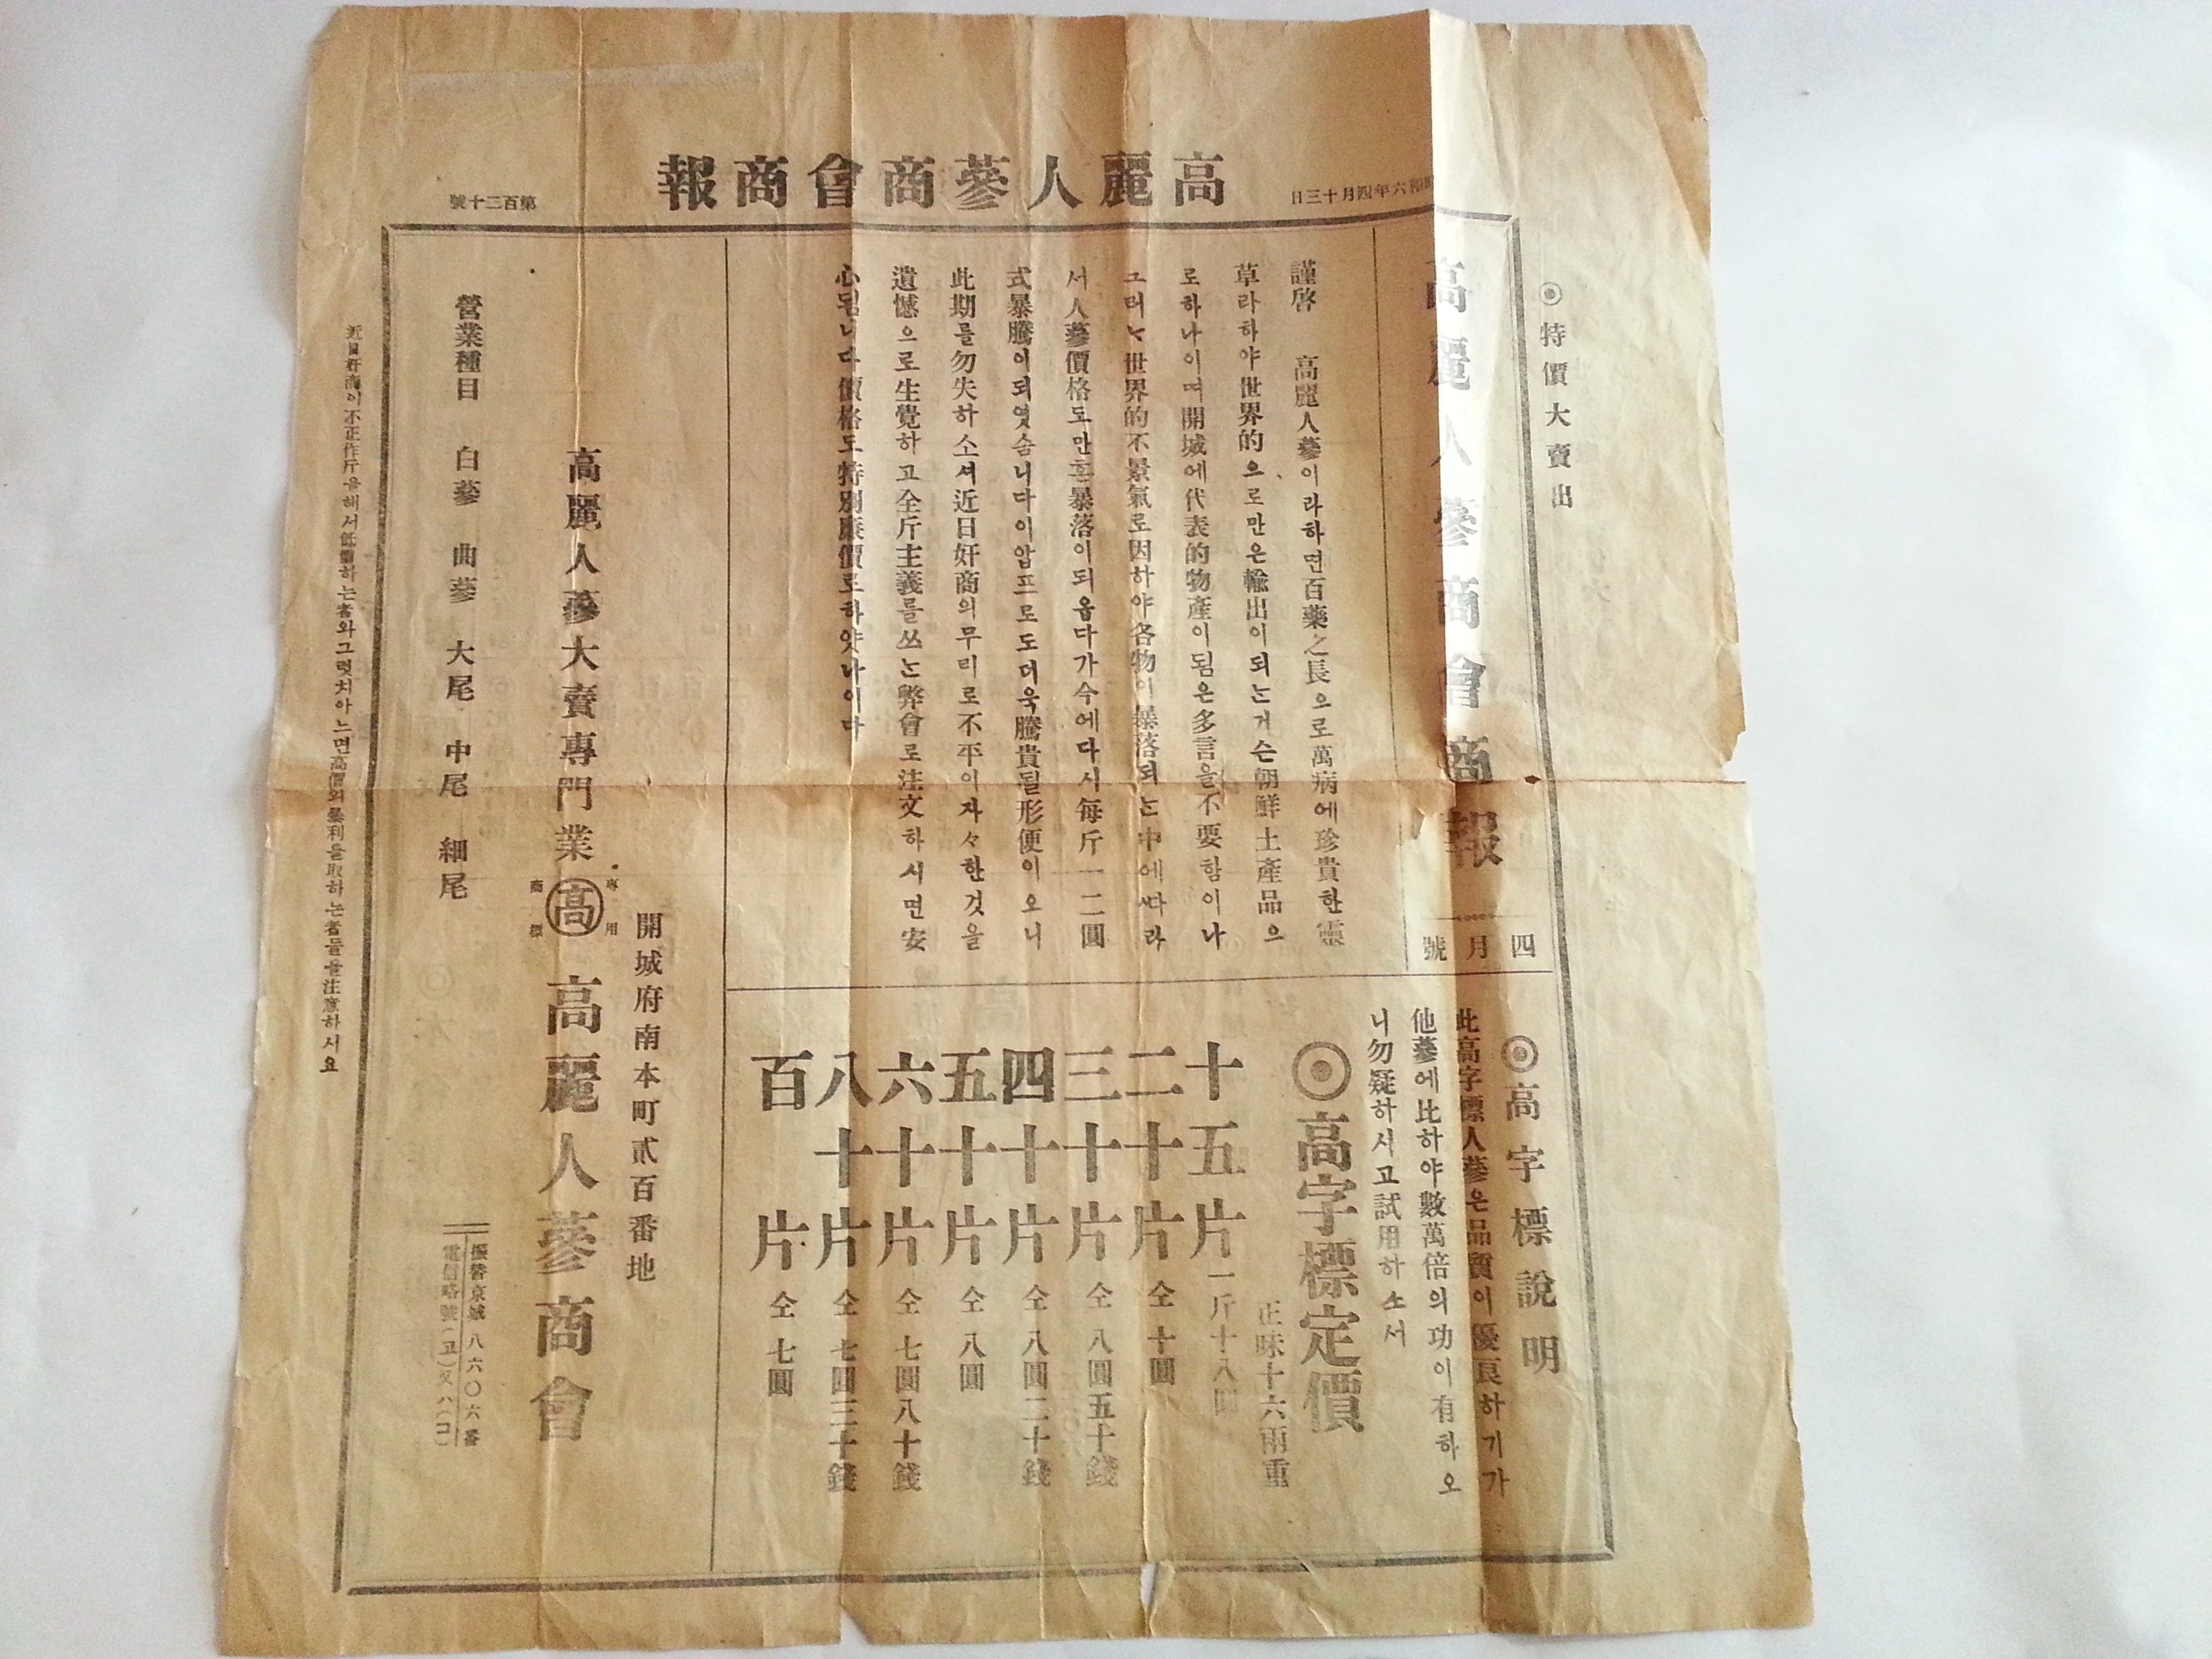 昭和六年四月十三日
高麗人蔘商會商報
第百二十號
◉特價大賣出
高麗人蔘商會商報
四月號
謹啓 高麗人蔘이라하면百藥之長으로萬病에珍貴한靈
草라하야世界的으로만은輸出이되는거슨朝鮮土產品으
로하나이며開城에代表的物產이됨은多言을不要함이나
그러는世界的不景氣로因하야各物이暴落되는中에ᄯᅡ라
서人蔘價格도만흔暴落이되옵다가今에다시每斤一二圓
式暴騰이되엿슴니다이압프로도더욱騰貴될形便이오니
此期를勿失하소셔近日奸商의무리로不平이자々한것을
遺憾으로生覺하고全斤主義를쓰는弊會로注文하시면安
心됨니다價格도特別廉價로하얏나이다
◉高字標說明
此高字標人蔘은品質이優良하기가
他蔘에比하야數萬倍의功이有하오
니勿疑하시고試用하소서
◉高字標定價
正味十六兩重
十五片 一斤十八圓
二十片 仝 十圓
三十片 仝 八圓五十錢
四十片 仝 八圓二十錢
五十片 仝 八圓
六十片 仝 七圓八十錢
八十片 仝 七圓三十錢
百片 仝 七圓
開城府南本町貳百番地
高麗人蔘大賣專門業 專用 高 商標 高麗人蔘商會
營業種目 白蔘 曲蔘 大尾 中尾 細尾
振替京城八六〇六番
電信略號(고)又ハ(コ)
近日奸商이不正作斤을해서低價하는者와그럿치아느면高價의暴利를取하는者들을注意하시요